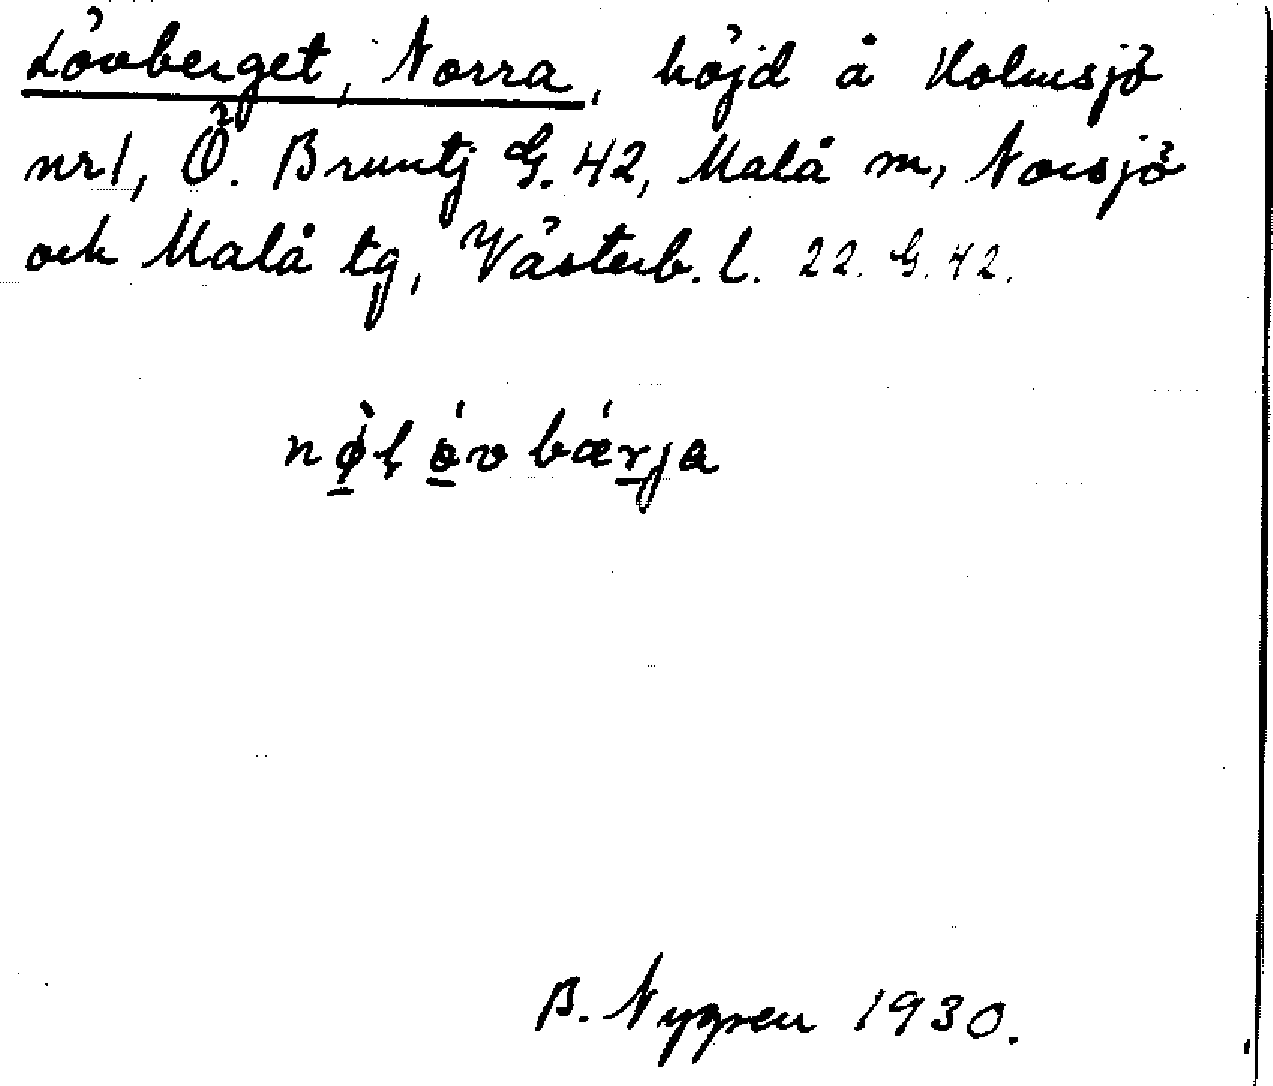 Lövberget, Norra, höjd å Holmsjö
nr 1, Ö. Bruntj G. 42, Malå m, Norsjö
och Malå tg, Västerb. l. 22. G. 42.
nø̀l ö́v bǽrja
B. Nygren 1930.